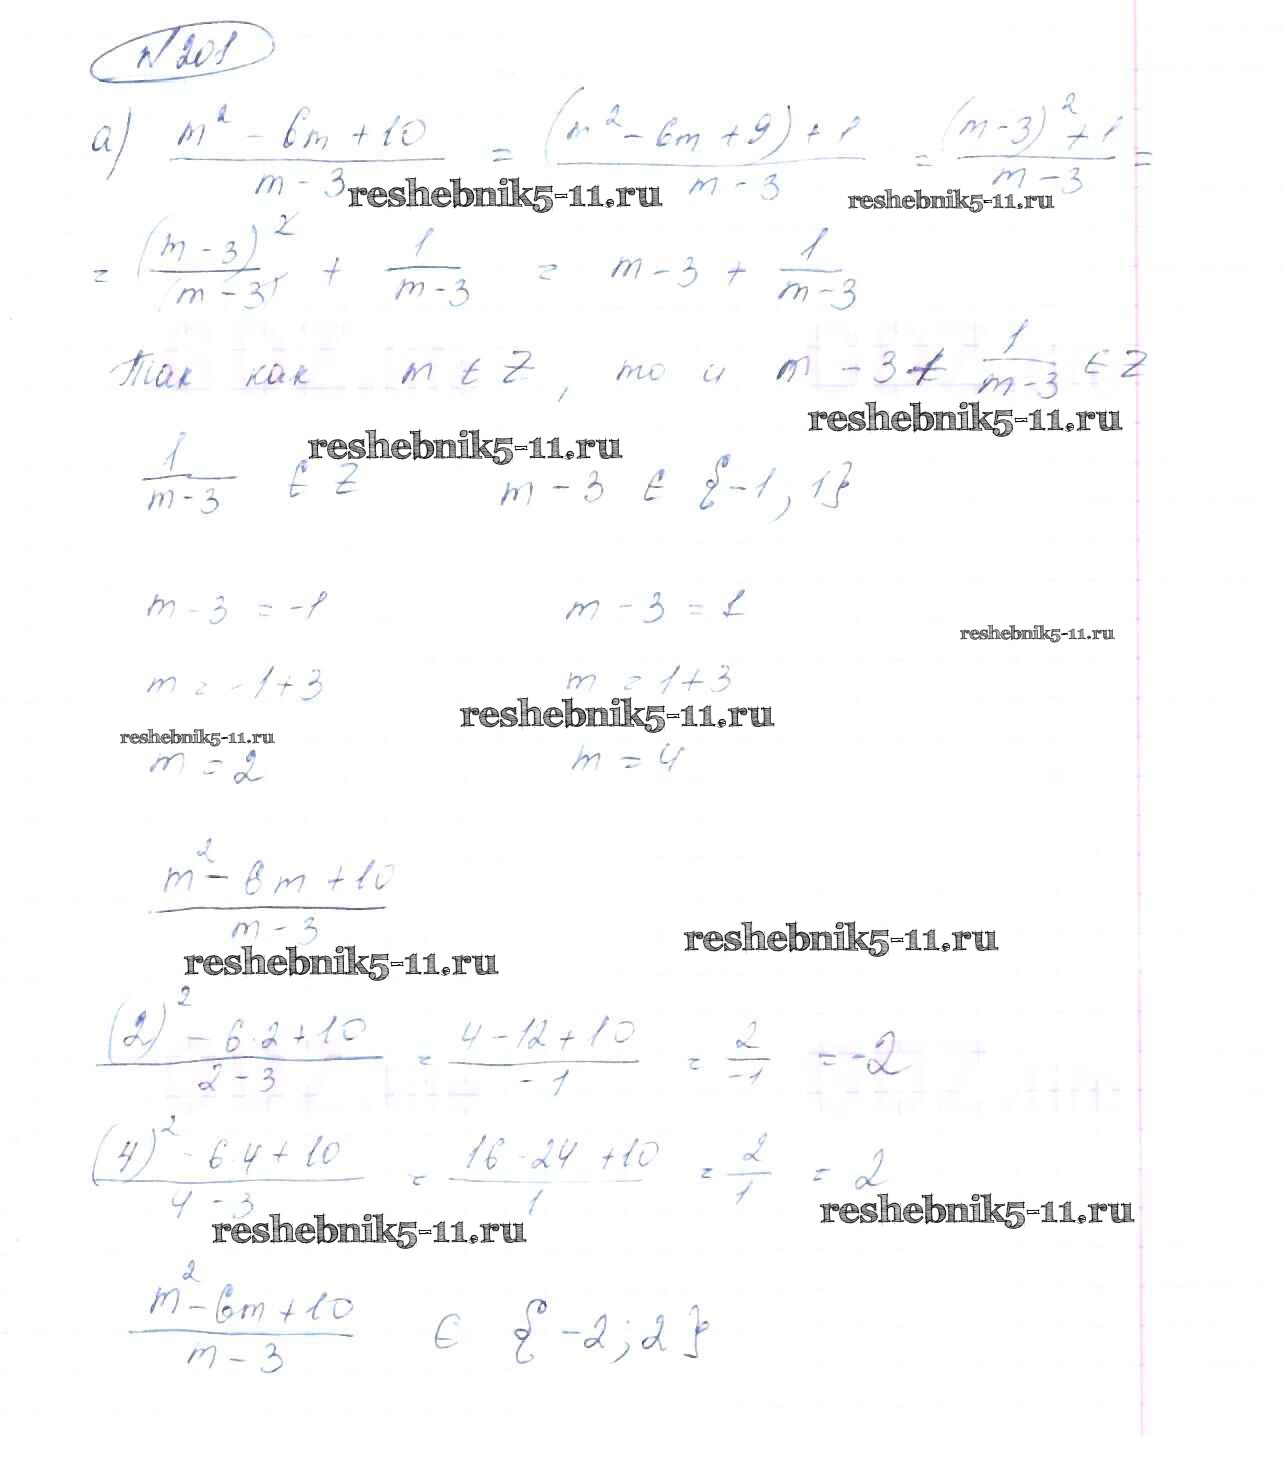 № 201
а) (m² - 6m + 10)/(m - 3) = ((m² - 6m + 9) + 1)/(m - 3) = ((m - 3)² + 1)/(m - 3) =
reshebnik5-11.ru reshebnik5-11.ru
= (m - 3)²/(m - 3) + 1/(m - 3) = m - 3 + 1/(m - 3)
Так как m ∈ Z, то и m - 3 + 1/(m - 3) ∈ Z
reshebnik5-11.ru
reshebnik5-11.ru
1/(m - 3) ∈ Z m - 3 ∈ {-1, 1}
m - 3 = -1 m - 3 = 1
reshebnik5-11.ru
m = -1 + 3 m = 1 + 3
reshebnik5-11.ru
reshebnik5-11.ru
m = 2 m = 4
(m² - 6m + 10)/(m - 3)
reshebnik5-11.ru
reshebnik5-11.ru
((2)² - 6·2 + 10)/(2 - 3) = (4 - 12 + 10)/(-1) = 2/(-1) = -2
((4)² - 6·4 + 10)/(4 - 3) = (16 - 24 + 10)/1 = 2/1 = 2
reshebnik5-11.ru
reshebnik5-11.ru
(m² - 6m + 10)/(m - 3) ∈ {-2; 2}